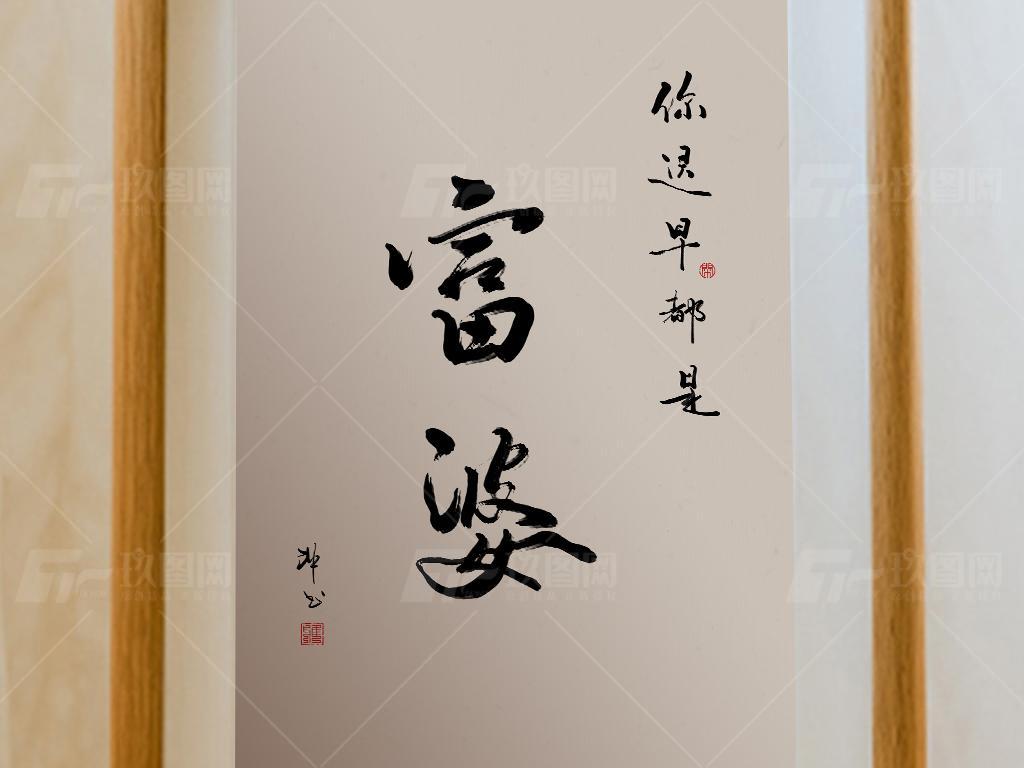 你迟早都是
富婆
玖图网
玖图网
玖图网
玖图网
玖图网
玖图网